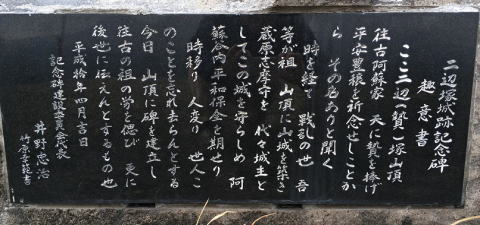 二辺塚城跡記念碑
趣意書
ここ三辺(贄)塚山頂
往古阿蘇家 天に贄を捧げ
平安豊穣を祈念せしことか
ら その名ありと聞く
時を経て 戦乱の世 吾
等が祖 山頂に山城を築き
蔵原志摩守を 代々城主と
してこの城を守らしめ 阿
蘇谷内平和保全を期せり
時移り 人変り 世人こ
のことを忘れ去らんとする
今日 山頂に碑を建立し
往古の祖の労を偲び 更に
後世に伝えんとするもの也
平成十年四月吉日
井野忠治
記念碑建設委員会代表
竹原 書